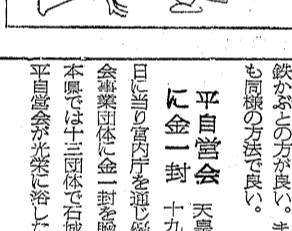 鉄かぶとの方が良い。ま
も同様の方法で良い。
平自営会
に金一封
天皇
十九
日に当り宮内庁を通じ優
会事業団体に金一封を贈
本県では十三団体で石城
平自営会が光栄に浴した